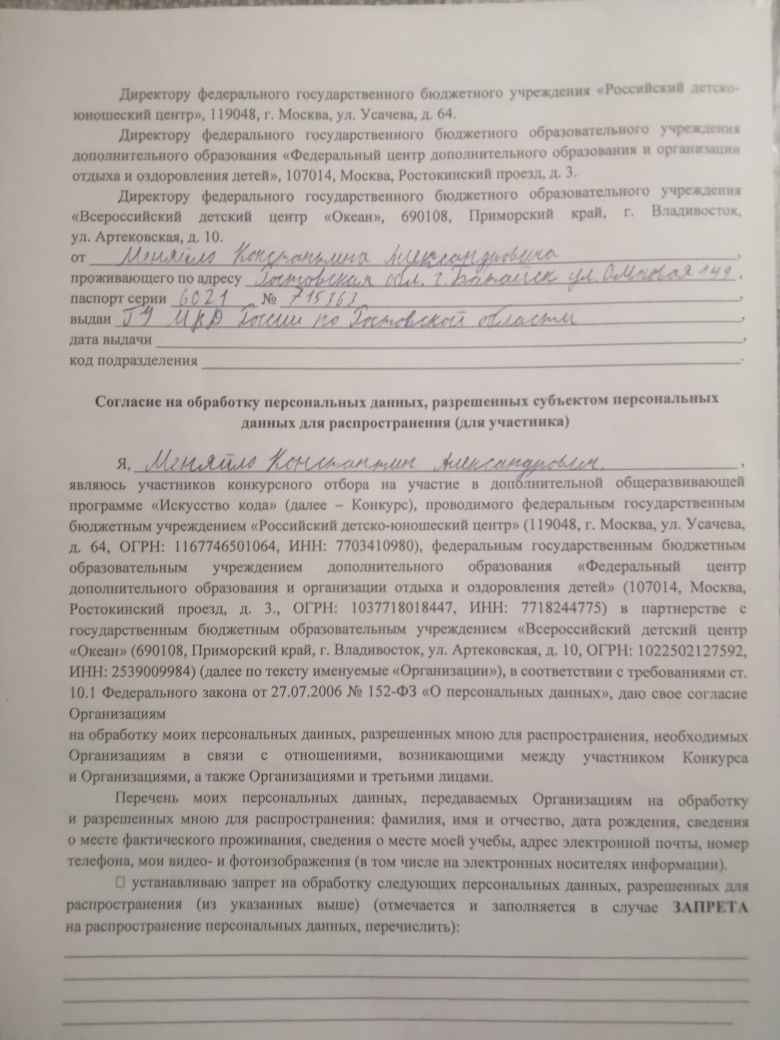 Директору федерального государственного бюджетного учреждения «Российский детско-
юношеский центр», 119048, г. Москва, ул. Усачева, д. 64.
Директору федерального государственного бюджетного образовательного учреждения
дополнительного образования «Федеральный центр дополнительного образования и организации
отдыха и оздоровления детей», 107014, Москва, Ростокинский проезд, д. 3.
Директору федерального государственного бюджетного образовательного учреждения
«Всероссийский детский центр «Океан», 690108, Приморский край, г. Владивосток,
ул. Артековская, д. 10.
от Меняйло Константина Александровича,
проживающего по адресу Ростовская обл. г. Батайск ул. 149,
паспорт серии 6021 № 715363,
выдан ГУ МВД России по Ростовской области,
дата выдачи,
код подразделения.
Согласие на обработку персональных данных, разрешенных субъектом персональных
данных для распространения (для участника)
Я, Меняйло Константин Александрович,
являюсь участников конкурсного отбора на участие в дополнительной общеразвивающей
программе «Искусство кода» (далее – Конкурс), проводимого федеральным государственным
бюджетным учреждением «Российский детско-юношеский центр» (119048, г. Москва, ул. Усачева,
д. 64, ОГРН: 1167746501064, ИНН: 7703410980), федеральным государственным бюджетным
образовательным учреждением дополнительного образования «Федеральный центр
дополнительного образования и организации отдыха и оздоровления детей» (107014, Москва,
Ростокинский проезд, д. 3., ОГРН: 1037718018447, ИНН: 7718244775) в партнерстве с
государственным бюджетным образовательным учреждением «Всероссийский детский центр
«Океан» (690108, Приморский край, г. Владивосток, ул. Артековская, д. 10, ОГРН: 1022502127592,
ИНН: 2539009984) (далее по тексту именуемые «Организации»), в соответствии с требованиями ст.
10.1 Федерального закона от 27.07.2006 № 152-ФЗ «О персональных данных», даю свое согласие
Организациям
на обработку моих персональных данных, разрешенных мною для распространения, необходимых
Организациям в связи с отношениями, возникающими между участником Конкурса
и Организациями, а также Организациями и третьими лицами.
Перечень моих персональных данных, передаваемых Организациям на обработку
и разрешенных мною для распространения: фамилия, имя и отчество, дата рождения, сведения
о месте фактического проживания, сведения о месте моей учебы, адрес электронной почты, номер
телефона, мои видео- и фотоизображения (в том числе на электронных носителях информации).
□ устанавливаю запрет на обработку следующих персональных данных, разрешенных для
распространения (из указанных выше) (отмечается и заполняется в случае ЗАПРЕТА
на распространение персональных данных, перечислить):